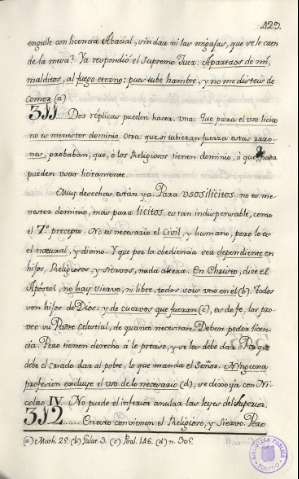 423.
engulle con licencia Abacial, sin dar mi las migajas, que se le caen
de la boca? Ya respondió el Supremo Juez. Apartaos de mi,
malditos, al fuego eterno: pues tube hambre, y no me disteis de
comer (a)
311 Dos réplicas pueden hacer, una. Que para el uso licito
no es menester dominio. Otra que si tubieran fuerza estas razo-
nes, probaban, que, ó los Religiosos tienen dominio, ó que
pueden usos licitamente.
Muy derechas están ya. Para usos ilicitos no es me-
nester dominio, mas para licitos es tan indispensable, como
el 7º precepto. No es necesario el Civil, y humano, pero lo es
el natural, y divino. Y que por la obediencia sea dependiente en
hijos, Religiosos y siervos, nada obsta. En Christo, dice el
Apóstol, no hay siervo, ni libre, todos sois uno en el (b). Todos
son hijos de Dios: y de cuervos que fueran (c), es de fe, los pro-
vee su Padre celestial, de quanto necesitan. Deben pedir licen-
cia. Pero tienen derecho a lo preciso, y se les debe dar.
debe el criado dar al pobre, lo que manda el Señor. Ninguna
profesion excluye el uso de lo necesario (d), se dixo ya con Ni-
colao IV. No puede el inferior anular las leyes del Superior.
312 En esto convienen el Religioso, y Siervo. Pero
(a) Math. 25. (b) Galat. 3. (c) Psal. 146. (d) n. 305.